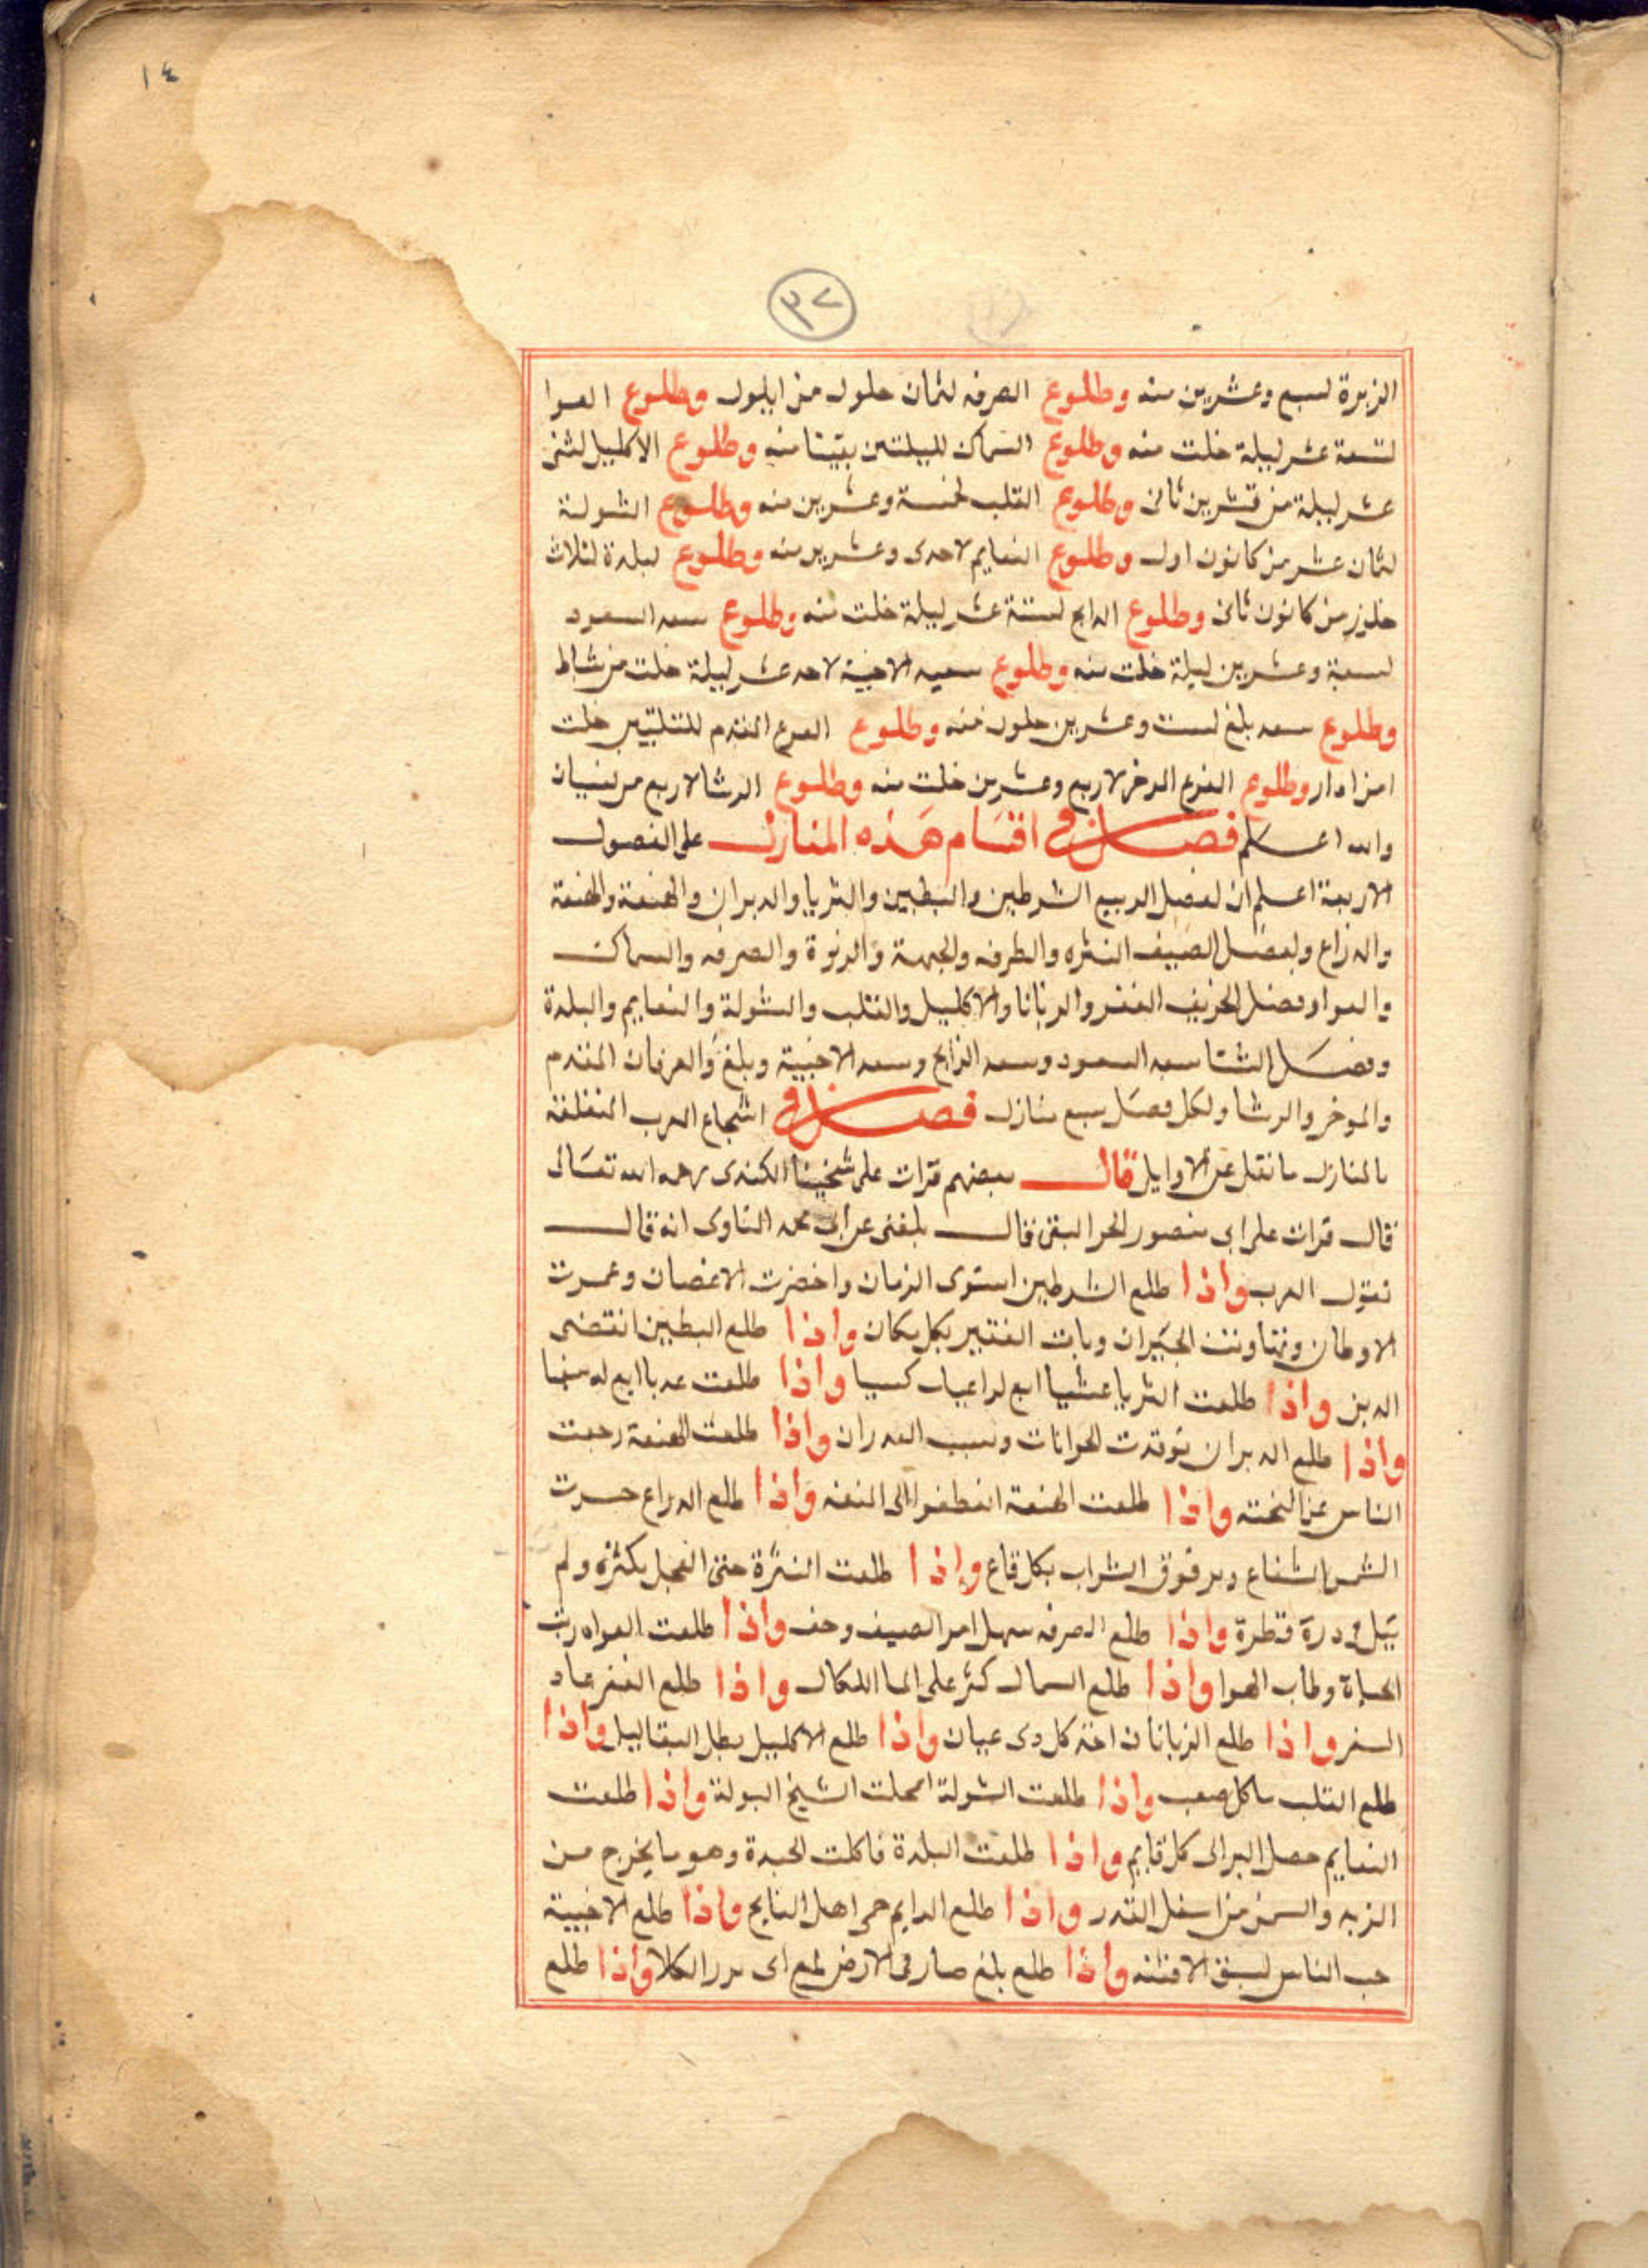 ١٤
٣٧
الزبرة لسبع وعشرين منه وطلوع الصرفه لثمان خلون من ايلول وطلوع العوا
لتسعة عشر ليلة خلت منه وطلوع السماك لليلتين بقيتا منه وطلوع الاكليل لثنى
عشر ليلة من تشرين ثانى وطلوع القلب لخمسة وعشرين منه وطلوع الشولة
لثمان عشر من كانون اول وطلوع النعايم لاحدى وعشرين منه وطلوع لبلدة لثلاث
خلون من كانون ثانى وطلوع الدابح لستة عشر ليلة خلت منه وطلوع سعد السعود
لسبعة وعشرين ليلة خلت منه وطلوع سعد الاخبية لاحد عشر ليلة خلت من شباط
وطلوع سعد بلغ لست وعشرين خلون منه وطلوع الفرع المقدم خلت
وطلوع الفرع الوخر لاربع وعشرين خلت منه وطلوع الرشا لاربع من نيسان
والله اعلم فصل في اقسام هذه المنازل على الفصول
الاربعة اعلم ان لفصل الربيع الشرطين والبطين والثريا والدبران والهقعة والهنعة
والدراع ولفصل الصيف النثره والطرفه والجبهة والصرفه والسماك
والعوا وفصل الخريف الغفر والزبانا والاكليل والقلب والشولة والنعايم والبلدة
وفصل الشتا سعد السعود وسعد الدابح وسعد الاخبية وبلغ والفرغان المقدم
والموخر والرشا ولكل فصل سبع منازل فصل في اسجاع العرب المتعلقة
بالمنازل ما نقل عن الاوايل قال بعضهم قرات على شيخنا الكندى رحمه الله تعالى
قال قرات على ابى منصور قال بلغنى عن ابى محمد انه قال
تقول العرب واذا طلع الشرطين استوى الزمان واخضرت الاغصان وعمرت
الاوطان وتهاونت الجيران وبات الفقير بكل مكان واذا طلع البطين انقضى
الدين واذا طلعت الثريا عشيا ابع لراعيك كسيا واذا طلعت
واذا طلع الدبران توقدت الحرانات ويبست الغدران واذا طلعت الهقعة رجعت
الناس عن النجعه واذا طلعت الهنعة الى المنعه واذا طلع الدراع حسرت
الشمس الشعاع وبرقوق الشراب بكل قاع واذا طلعت النثرة جنى النخل بكثره ولم
درة قطرة واذا طلع الصرفه سهل امر الصيف وخف واذا طلعت العوا
الحياة وطاب الهوا واذا طلع السماك كثر على الما اللكاك واذا طلع الغفر عاد
السفر واذا طلع الزبانا كل دى عيان واذا طلع الاكليل بطل واذا
طلع القلب كل صعب واذا طلعت الشولة اعجلت الشيخ البولة واذا طلعت
النعايم حصل البرالى كل قايم واذا طلعت البلدة فاكلت الجبدة وهو ما يخرج من
الزبد والسمن من اسفل القدر واذا طلع الدابح حمى اهل النابح واذا طلع الاخبية
الناس واذا طلع بلغ صار فى الارض لمع اى الكلا واذا طلع